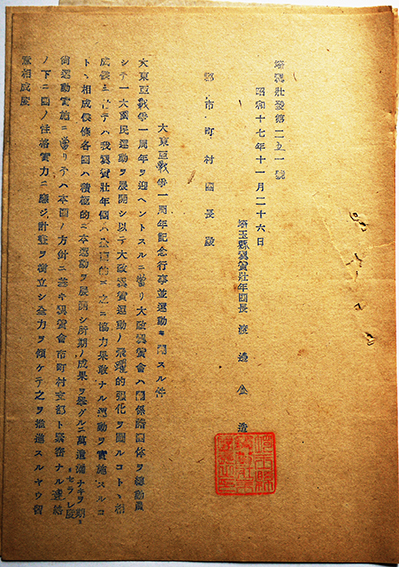 埼翼壯發第二五一號
昭和十七年十一月二十六日
埼玉縣翼賛壯年團長 渡邊金造
郡市町村團長殿
大東亞戰爭一周年記念行事並運動ニ關スル件
大東亞戰爭一周年ヲ迎ヘントスルニ當リ大政翼賛會ハ關係諸團体ヲ總動員
シテ一大國民運動ヲ展開シ以テ大政翼賛運動ノ飛躍的强化ヲ圖ルコトヽ相
成候ニ
テハ我翼賛壯年團ハ
的ニ之ニ協力果敢ナル運動ヲ實施スルコ
トヽ相成候條各團ハ積極的ニ本運動ヲ展開シ所期ノ成果ヲ擧グルニ萬遺漏ナキヲ期セラレ度
尚運動實施ニ當リテハ本團ノ方針ニ基キ翼賛會市町村支部ト緊密ナル連絡
ノ下ニ團ノ性格實力ニ應ジ計畫ヲ樹立シ全力ヲ傾ケテ之ヲ推進スルヤウ
相成度